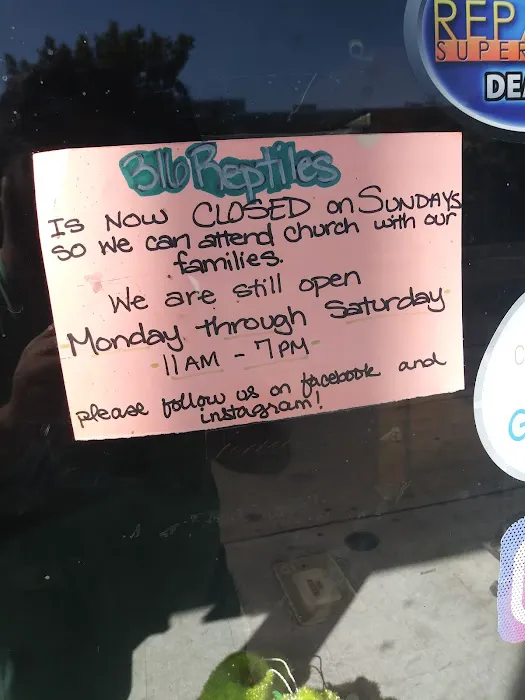 REP
SUPER
DEA
316 Reptiles
Is NOW CLOSED on SUNDAYS
so we can attend church with our
families.
We are still open
Monday through Saturday
11AM - 7PM
please follow us on facebook and
instagram!
C
G